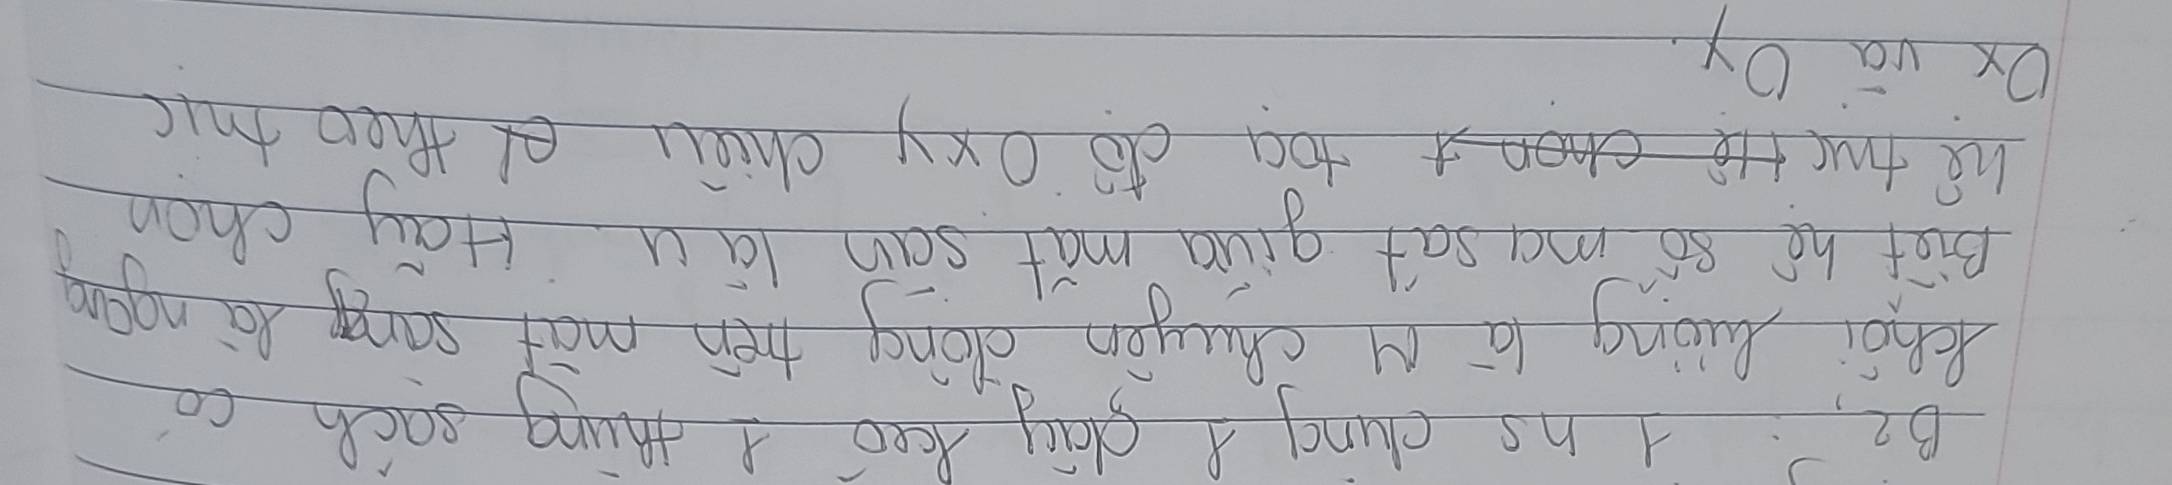 B2, : 1 hs dùng 1 dây kéo 1 thùng sách có
khối lượng là M chuyển động trên mặt sang là ngang
Biết hệ số ma sát giữa mặt sàn là u. Hãy chọn
hệ trục tọa độ Oxy chiếu theo trục
Ox và Oy.